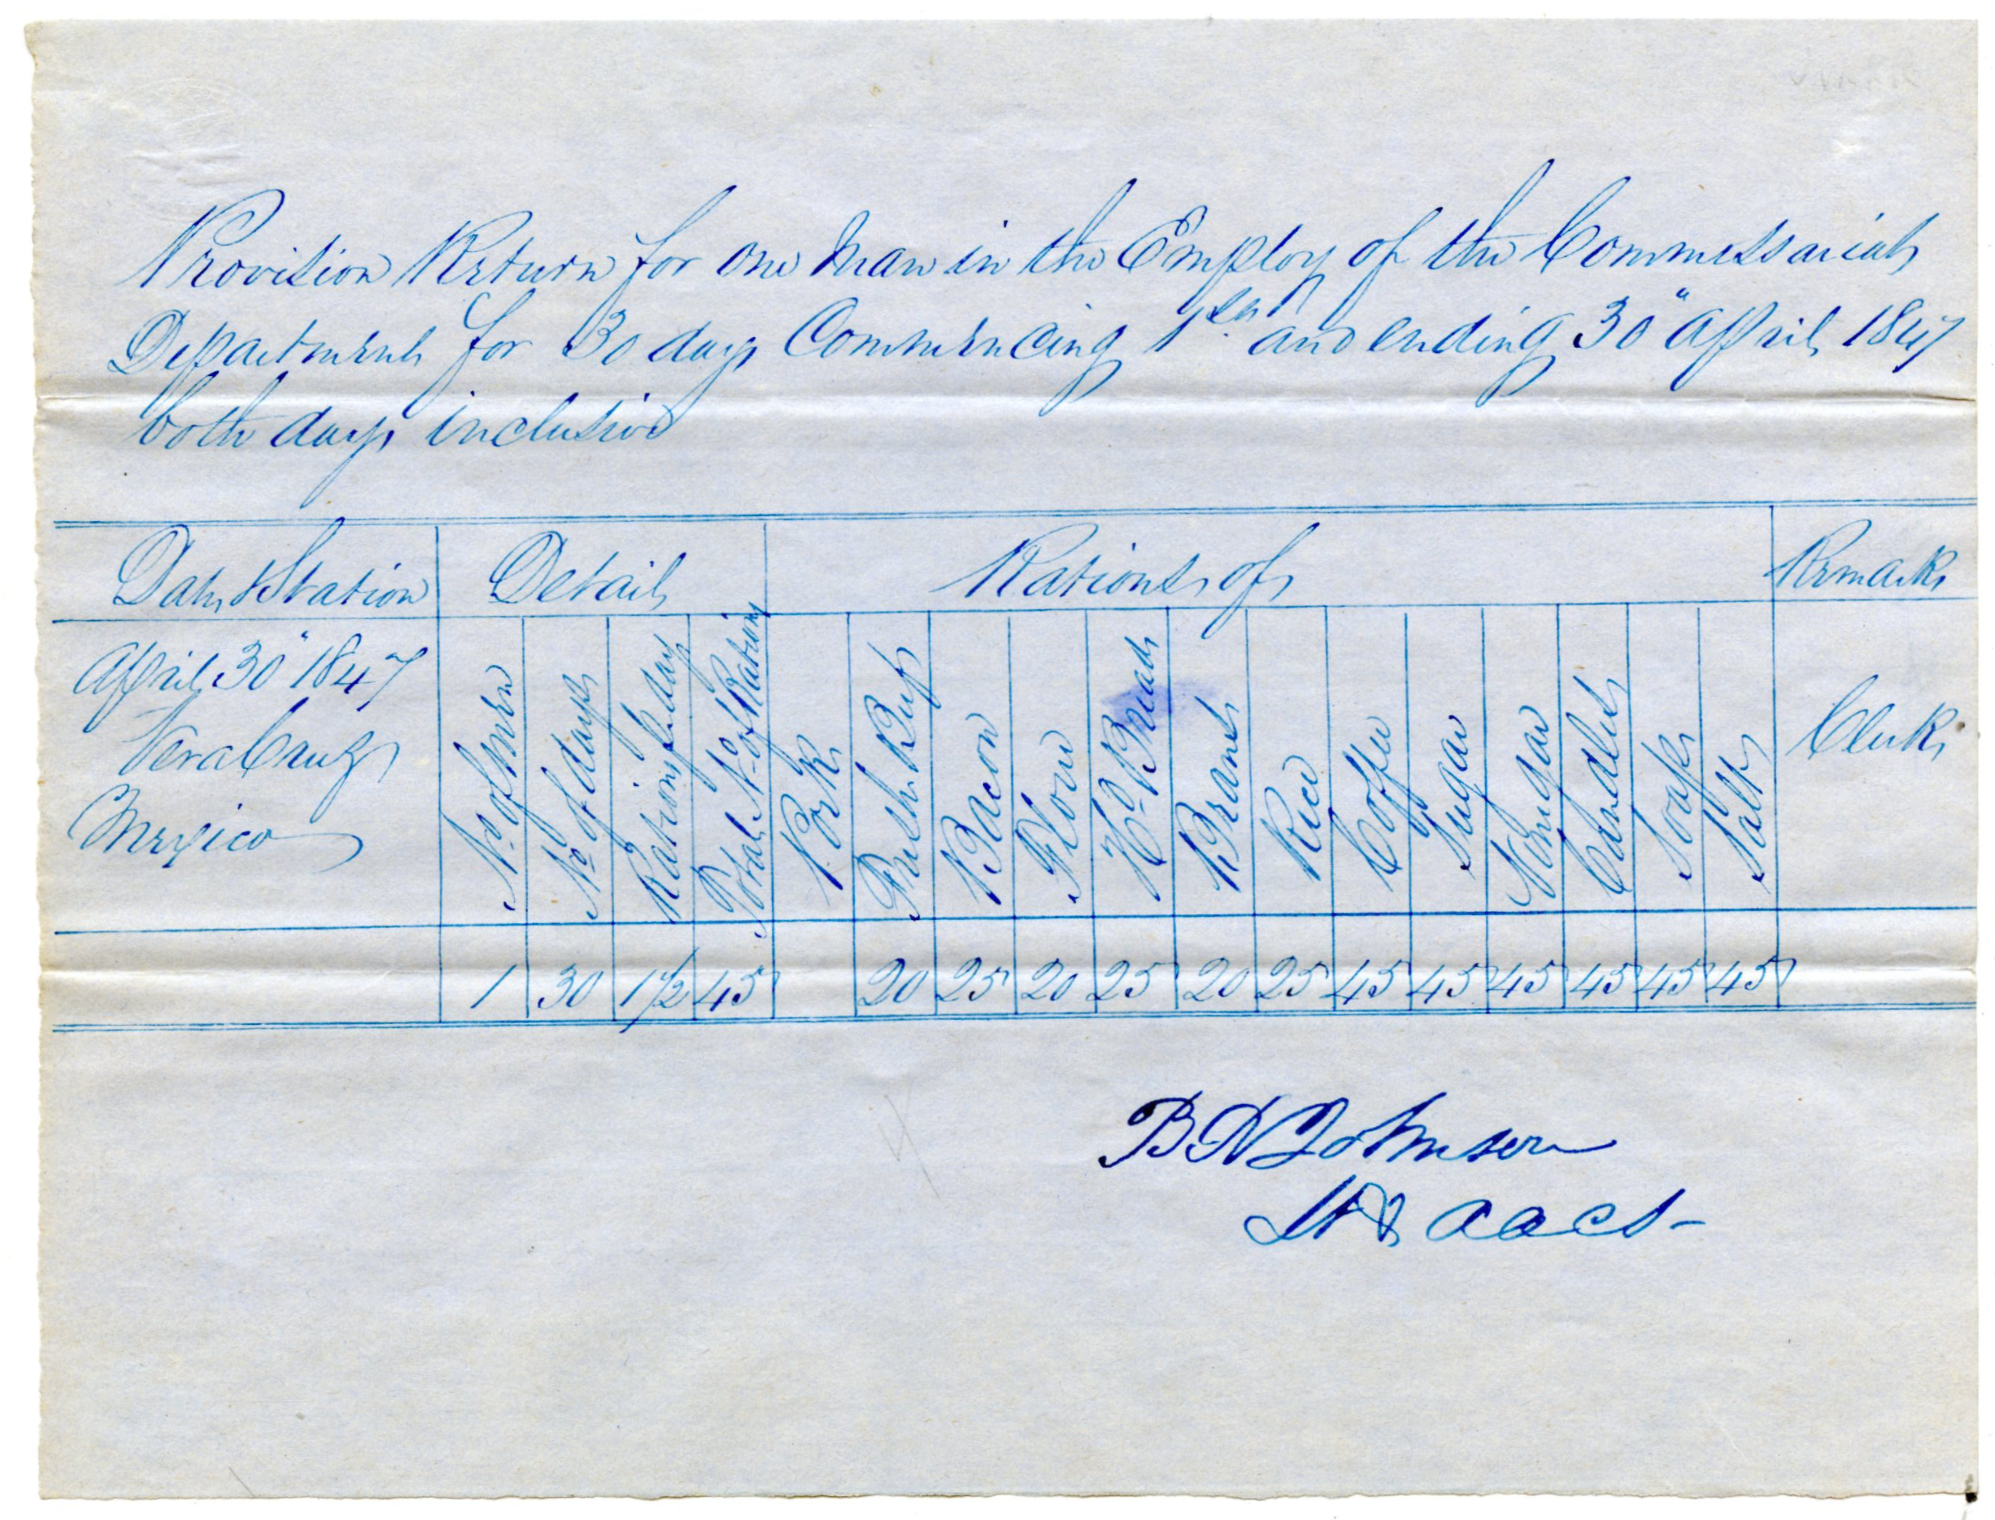 Provision Return for one Man in the Employ of the Commissariat
Department for 30 days Commencing 1st and ending 30" April 1847
both days inclusive
Date & Station Detail Rations of Remarks
April 30" 1847
Vera Cruz
Mexico
No of men
No of days
Rations per day
Total No of Rations
Pork
Fresh Beef
Bacon
Flour
Hd Bread
Beans
Rice
Coffee
Sugar
Vinegar
Candles
Soap
Salt
Clerk
1 30 1 1/2 45 20 25 20 25 20 25 45 45 45 45 45 45
B R Johnson
Lt & a a c s